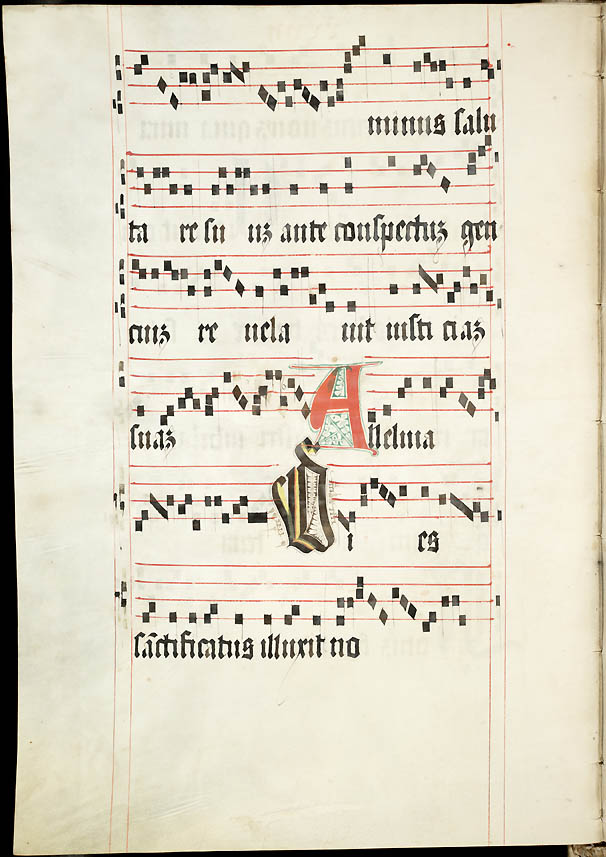 minus salu
ta re su uz ante conspectuz gen
ciuz re uela uit iusti ciaz
suaz Alleluia
Di es
sāctificatus illuxit no